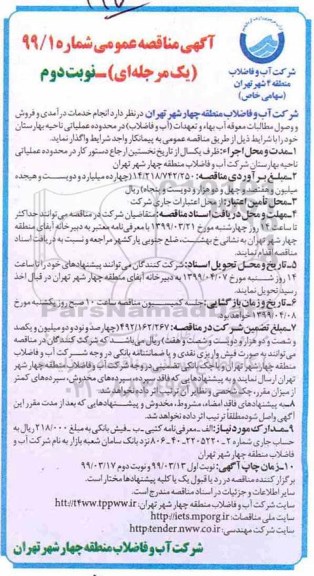 آگهی مناقصه عمومی شماره ۹۹/۱
(یک مرحله‌ای) ـ نوبت دوم
شرکت آب و فاضلاب
منطقه ۴ شهر تهران
(سهامی خاص)
شرکت آب و فاضلاب منطقه چهار شهر تهران در نظر دارد انجام خدمات درآمدی و فروش
و وصول مطالبات معوقه آب بهاء و تعهدات (آب و فاضلاب) در محدوده عملیاتی ناحیه بهارستان
خود را با شرایط ذیل از طریق مناقصه عمومی به پیمانکار واجد شرایط واگذار نماید.
۱ـ مدت و محل اجرا: ظرف یکسال از تاریخ نخستین ارجاع دستور کار در محدوده عملیاتی
ناحیه بهارستان شرکت آب و فاضلاب منطقه چهار شهر تهران
۲ـ مبلغ برآوردی مناقصه: ۱۴/۲۱۸/۷۴۲/۲۵۰ (چهارده میلیارد و دویست و هیجده
میلیون و هفتصد و چهل و دو هزار و دویست و پنجاه) ریال
۳ـ محل تأمین اعتبار: از محل اعتبارات جاری شرکت
۴ـ مهلت و محل دریافت اسناد مناقصه: متقاضیان شرکت در مناقصه می‌توانند حداکثر
تا ساعت ۱۴ روز چهارشنبه مورخ ۱۳۹۹/۰۳/۲۱ با معرفی‌نامه معتبر به دبیرخانه آبفای منطقه
چهار شهر تهران به نشانی خ بهشت، ضلع جنوبی پارکشهر مراجعه و نسبت به دریافت اسناد
مناقصه اقدام نمایند.
۵ـ تاریخ و محل تحویل اسناد: شرکت کنندگان می‌توانند پیشنهادهای خود را تا ساعت
۱۴ روز شنبه مورخ ۱۳۹۹/۰۴/۰۷ به دبیرخانه آبفای منطقه چهار شهر تهران در قبال اخذ
رسید تحویل نمایند.
۶ـ تاریخ و زمان بازگشایی: جلسه کمیسیون مناقصه ساعت ۱۰ صبح روز یکشنبه مورخ
۱۳۹۹/۰۴/۰۸ خواهد بود
۷ـ مبلغ تضمین شرکت در مناقصه: ۴۹۲/۱۶۲/۲۶۷ (چهارصد و نود و دو میلیون و یکصد
و شصت و دو هزار و دویست و شصت و هفت) ریال می‌باشد که شرکت کنندگان در مناقصه
می‌توانند به صورت فیش واریزی نقدی و یا ضمانتنامه بانکی در وجه شرکت آب و فاضلاب
منطقه چهار شهر تهران و یا چک بانکی تضمینی در وجه شرکت آب و فاضلاب منطقه چهار شهر
تهران ارسال نمایند و به پیشنهادهایی که فاقد سپرده، سپرده‌های مخدوش، سپرده‌های کمتر
از میزان مقرر، چک شخصی و نظایر آن ترتیب اثر داده نخواهد شد.
۸ـ به پیشنهادهای فاقد امضاء، مشروط، مخدوش و پیشنهادهایی که بعد از مدت مقرر این
آگهی واصل شود مطلقاً ترتیب اثر داده نخواهد شد.
۹ـ مدارک مورد نیاز: الف ـ معرفی‌نامه کتبی ـ ب ـ فیش بانکی به مبلغ ۲۱۸/۰۰۰ ریال به
حساب جاری شماره ۲ـ۲۲۰۵۲۲۰ـ۴۰ـ۸۰۶ نزد بانک سامان شعبه بازار به نام شرکت آب و
فاضلاب منطقه چهار شهر تهران
۱۰ـ زمان چاپ آگهی: نوبت اول ۹۹/۰۳/۱۳ و نوبت دوم ۹۹/۰۳/۱۷
برگزار کننده مناقصه در رد یا قبول یک یا کلیه پیشنهادها مختار است.
سایر اطلاعات و جزئیات در اسناد مناقصه مندرج است.
سایت شرکت آب و فاضلاب منطقه چهار شهر تهران: htt:t۴ww.tppww.ir
سایت ملی مناقصات: http://iets.mporg.ir
سایت شرکت مهندسی: http:tender.nww.co.ir
شرکت آب و فاضلاب منطقه چهار شهر تهران